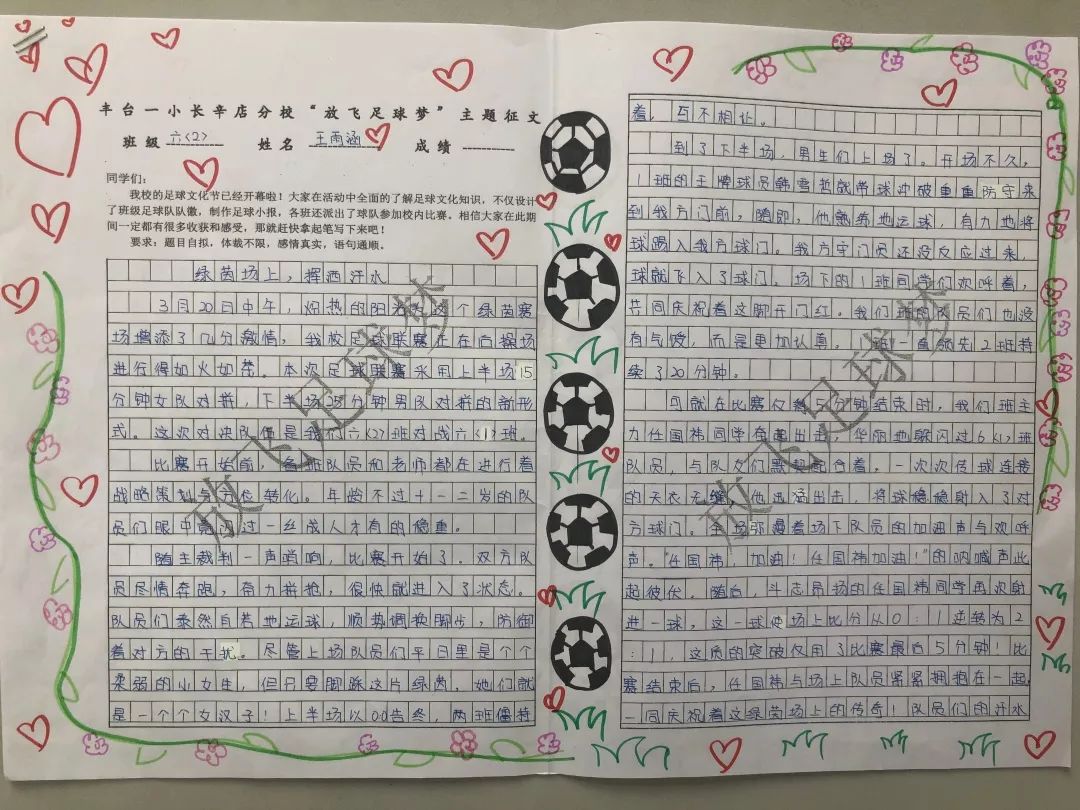 丰台一小长辛店分校“放飞足球梦”主题征文
班级 六<2> 姓名 王雨涵 成绩
同学们：
我校的足球文化节已经开幕啦！大家在活动中全面的了解足球文化知识，不仅设计
了班级足球队队徽，制作足球小报，各班还派出了球队参加校内比赛。相信大家在此期
间一定都有很多收获和感受，那就赶快拿起笔写下来吧！
要求：题目自拟，体裁不限，感情真实，语句通顺。
绿茵场上，挥洒汗水
3月20日中午，炽热的阳光为这个绿茵赛
场增添了几分激情，我校足球联赛正在向操场
进行得如火如荼。本次足球联赛采用上半场15
分钟女队对拼，下半场25分钟男队对拼的新形
式。这次对决队便是我们六<2>班对战六<1>班。
比赛开始前，各班队员和老师都在进行着
战略策划与方位转化。年龄不过十一二岁的队
员们眼中竟闪过一丝成人才有的稳重。
随主裁判一声哨响，比赛开始了。双方队
员尽情奔跑，奋力拼抢，很快就进入了状态。
队员们泰然自若地运球，顺势调换脚步，防御
着对方的干扰。尽管上场队员们平日里是个个
柔弱的小女生，但只要脚踩这片绿茵，她们就
是一个个女汉子！上半场以00告终，两班僵持
着，互不相让。
到了下半场，男生们上场了。开场不久，
1班的王牌球员韩雪哲就带球冲破重重防守来
到我方门前，随即，他熟练地运球，有力地将
球踢入我方球门。我方守门员还没反应过来，
球就飞入了球门。场下的1班同学们欢呼着，
共同庆祝着这脚开门红。我们班的队员们也没
有气馁，而是更加认真。1班一直领先2班持
续了20分钟。
可就在比赛仅剩5分钟结束时，我们班主
力任国祎同学奋起出击，华丽地躲闪过6<1>班
队员，与队友们默契配合着。一次次传球连接
的天衣无缝，他迅猛出击，将球稳稳射入了对
方球门。全场弥漫着场下队员的加油声与欢呼
声。“任国祎，加油！任国祎加油！”的呐喊声此
起彼伏。随后，斗志昂扬的任国祎同学再次射
进一球，这一球使场上比分从0：1逆转为2
：1，这质的突破仅用了比赛最后5分钟！比
赛结束后，任国祎与场上队员紧紧拥抱在一起，
一同庆祝着这绿茵场上的传奇！队员们的汗水
放飞足球梦
放飞足球梦